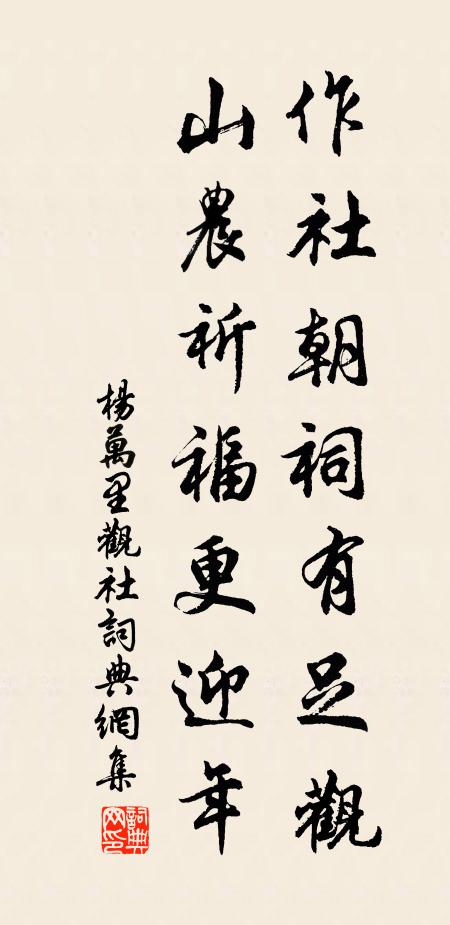 作社朝祠有足觀
山農祈福更迎年
楊萬里觀社詞典網集
詞典網印